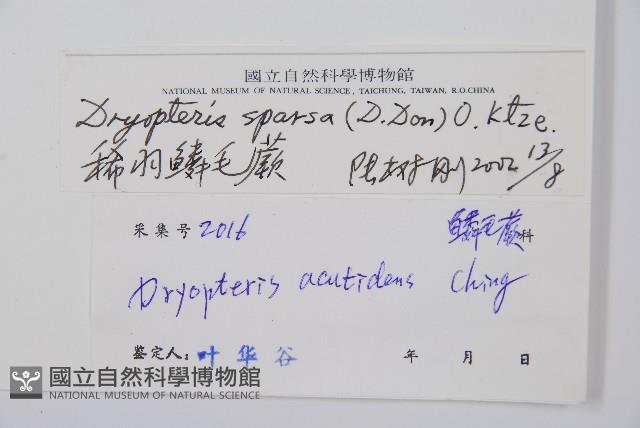 國立自然科學博物館
NATIONAL MUSEUM OF NATURAL SCIENCE, TAICHUNG, TAIWAN, R.O.CHINA
Dryopteris sparsa (D.Don) O. Ktze.
稀羽鱗毛蕨 陆树刚 2002 12/8
采集号 2016 鱗毛蕨科
Dryopteris acutidens Ching
鉴定人: 叶华谷 年 月 日
國立自然科學博物館
NATIONAL MUSEUM OF NATURAL SCIENCE